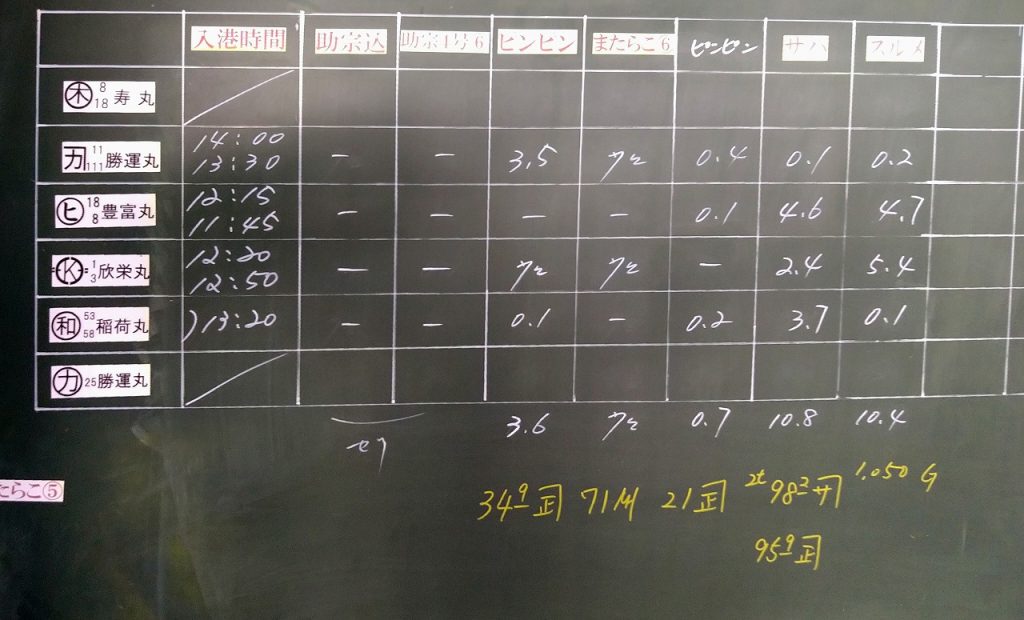 入港時間 助宗込 助宗4号6 ピンピン またらこ⑥ ピンピン サバ スルメ
木 8 18 寿丸
カ 11 111 勝運丸 14:00 13:30 – – 3.5 0.4 0.1 0.2
ヒ 18 8 豊富丸 12:15 11:45 – – – – 0.1 4.6 4.7
K 1 3 欣栄丸 12:20 12:50 – – – 2.4 5.4
和 53 58 稲荷丸 13:20 – – 0.1 – 0.2 3.7 0.1
カ 25 勝運丸
3.6 0.7 10.8 10.4
セリ
たらこ⑤
34 9 71 21 2t 98 1.050 G
95 9